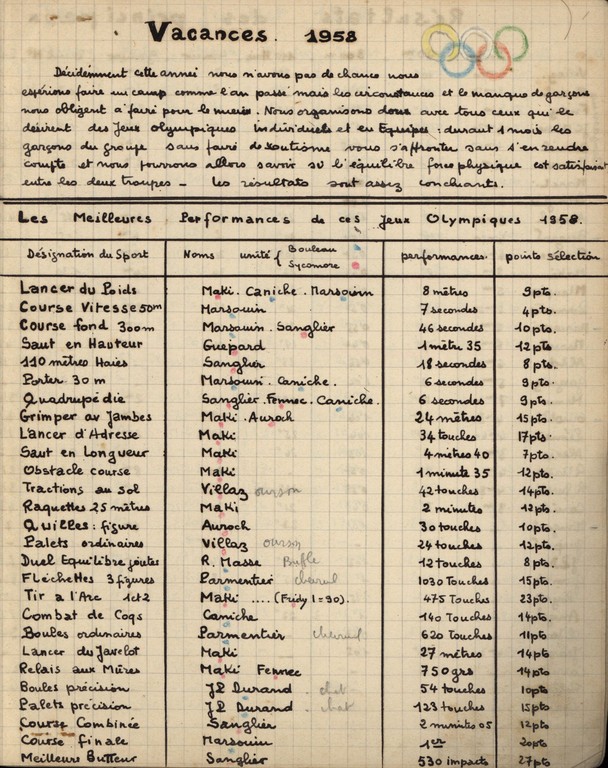 Vacances. 1958
Décidément cette année nous n'avons pas de chance nous
espérions faire un camp comme l'an passé mais les circonstances et le manque de garçons
nous obligent à faire pour le mieux. Nous organisons donc avec tous ceux qui le
désirent des Jeux olympiques individuels et en Equipes : durant 1 mois les
garçons du groupe sans faire de vous s'affronter sans s'en rendre
compte et nous pourrons allors savoir si l'équilibre force physique est satisfaisant
entre les deux troupes - les résultats sont assez concluants.
Les Meilleures Performances de ces Jeux Olympiques 1958.
Désignation du Sport Noms unité { Bouleau Sycomore performances. points sélection
Lancer du Poids Maki. Caniche. Marsouin 8 mètres 9 pts.
Course Vitesse 50m Marsouin 7 secondes 4 pts.
Course fond 300m Marsouin. Sanglier 46 secondes 10 pts.
Saut en Hauteur Guépard 1 mètre 35 12 pts
110 mètres Haies Sanglier 18 secondes 8 pts.
Porter 30 m Marsouin. Caniche. 6 secondes 9 pts.
Quadrupédie Sanglier. Fennec. Caniche. 6 secondes 9 pts.
Grimper av Jambes Maki. Auroch 24 mètres 15 pts.
Lancer d'Adresse Maki 34 touches 17 pts.
Saut en Longueur Maki 4 mètres 40 7 pts.
Obstacle course Maki 1 minute 35 12 pts.
Tractions au sol Villaz ourson 42 touches 14 pts.
Raquettes 25 mètres Maki 2 minutes 12 pts.
Quilles : figure Auroch 30 touches 10 pts.
Palets ordinaires Villaz ourson 24 touches 12 pts.
Duel Equilibre joutes R. Masse Buffle 12 touches 8 pts.
Fléchettes 3 figures Parmentier chevreuil 1030 Touches 15 pts.
Tir a l'Arc 1et2 Maki .... (Fridy 1=90). 475 Touches 23 pts.
Combat de Coqs Caniche 140 Touches 14 pts.
Boules ordinaires Parmentier chevreuil 620 Touches 11 pts
Lancer du Javelot Maki 27 mètres 14 pts
Relais aux Mûres Maki Fennec 750 grs 14 pts
Boules précision JP Durand. chat 54 touches 10 pts
Palets précision JP Durand. chat 123 touches 15 pts
Course Combinée Sanglier 2 minutes 05 12 pts
Course finale Marsouin 1er 20 pts
Meilleur Butteur Sanglier 530 impacts 27 pts